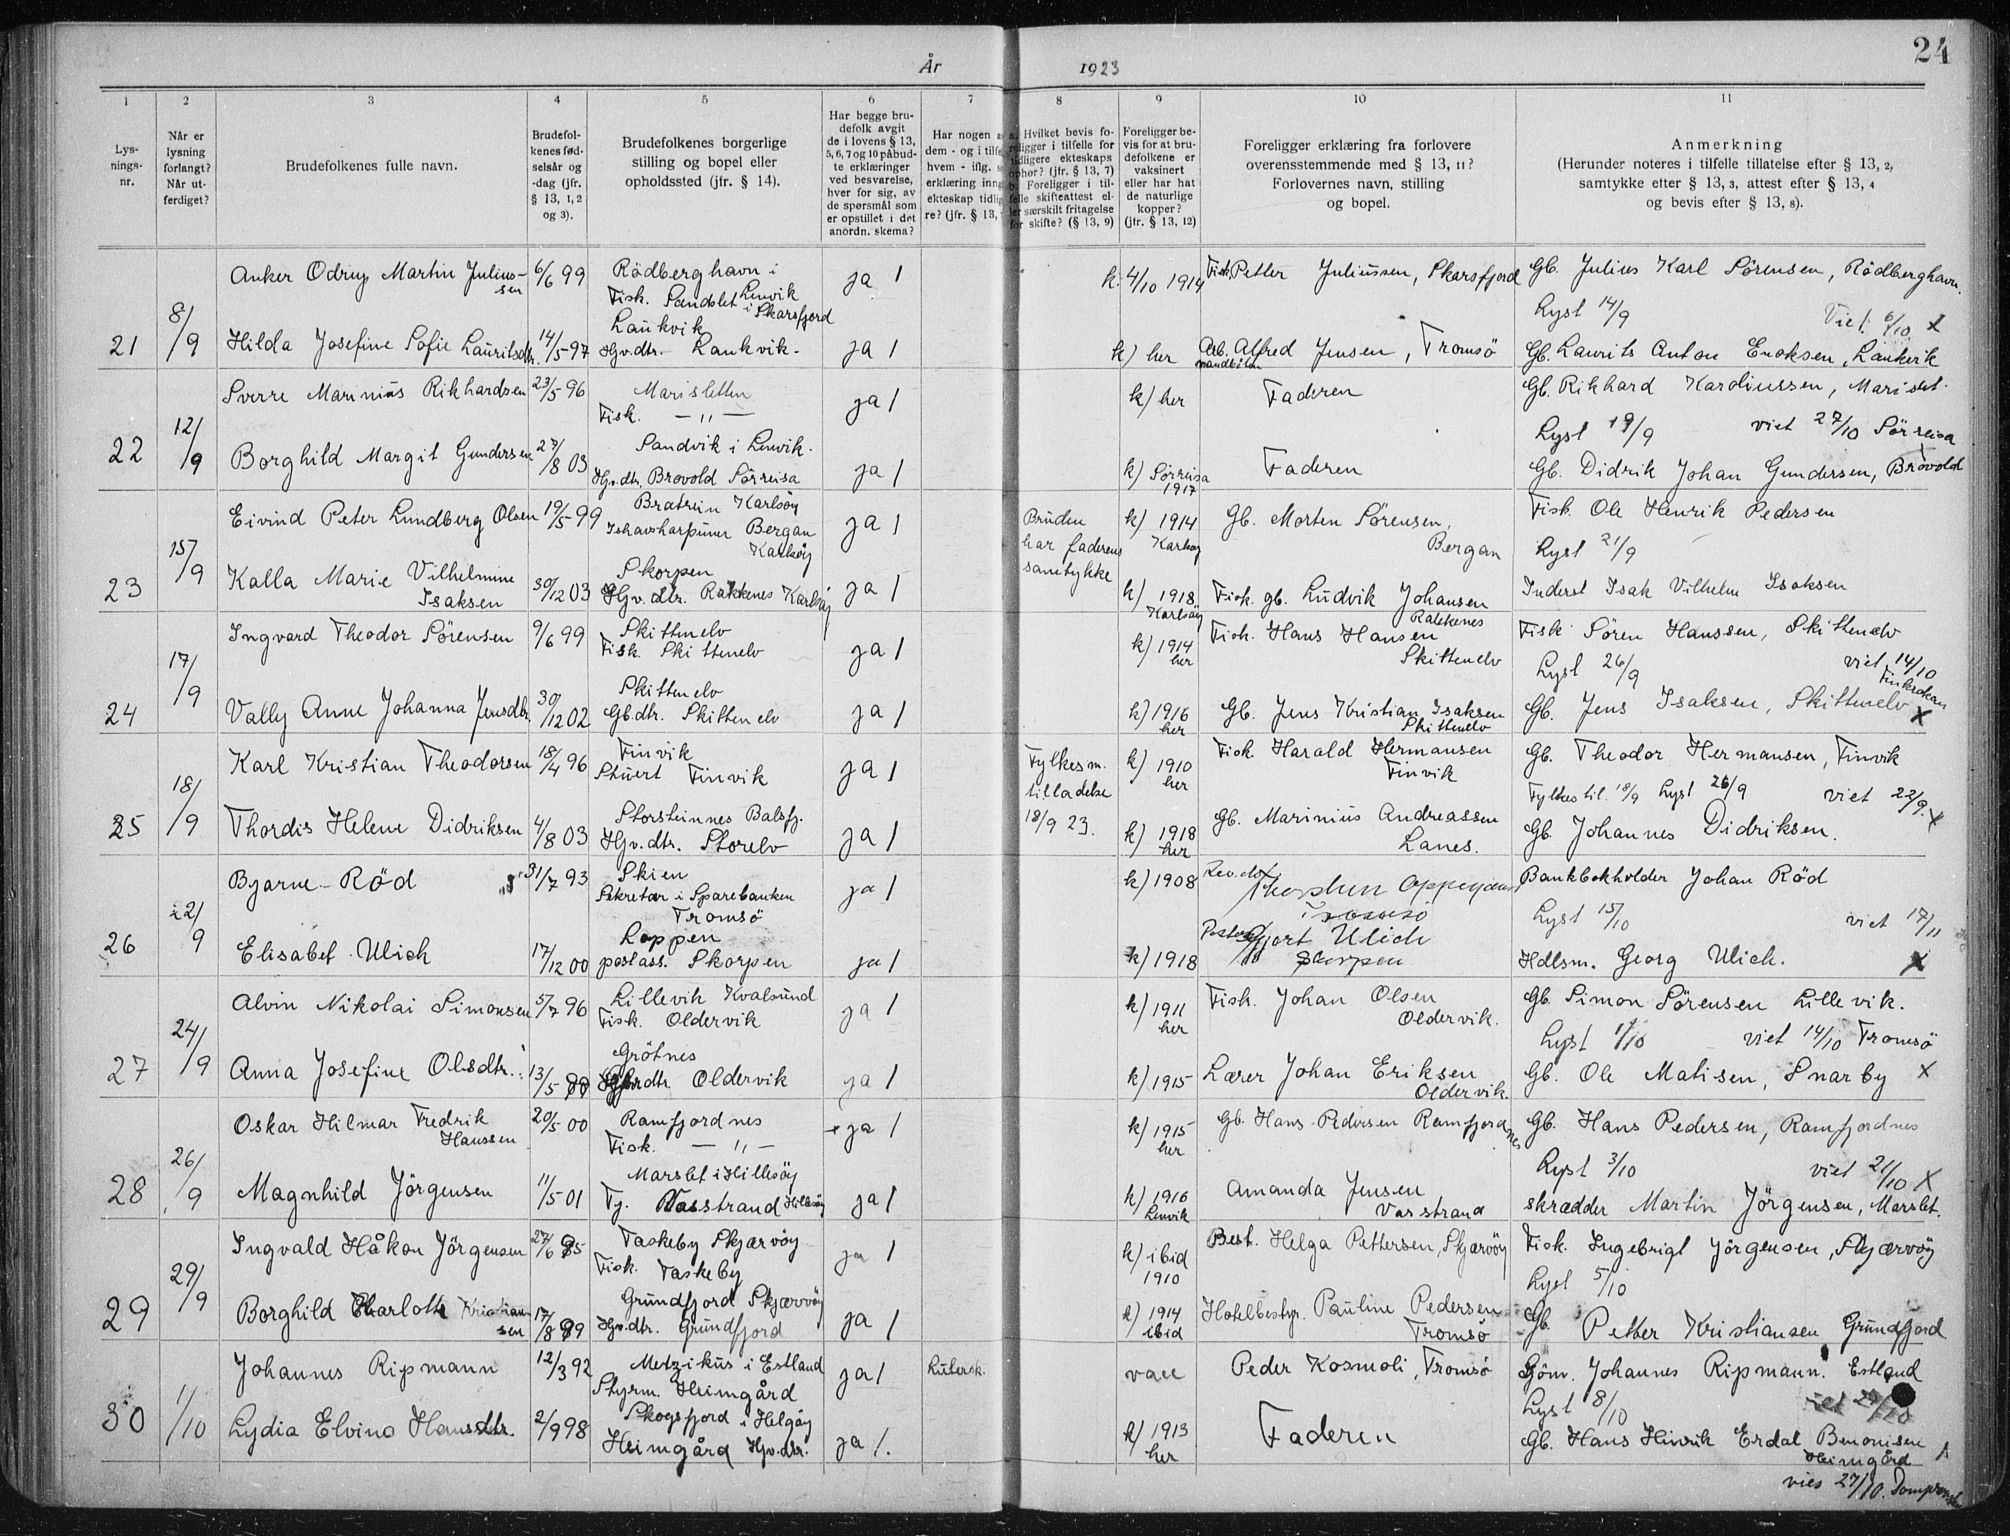 24
År 1923
1 2 3 4 5 6 7 8 9 10 11
Lys-
nings-
nr.
Når er
lysning
forlangt?
Når ut-
ferdiget?
Brudefolkenes fulle navn.
Brudefol-
kenes fød-
selsår og
-dag (jfr.
§ 13, 1, 2
og 3).
Brudefolkenes borgerlige
stilling og bopel eller
opholdssted (jfr. § 14).
Har begge bru-
defolk avgit
de i lovens § 13,
5, 6, 7 og 10 påbud-
te erklæringer
ved besvarelse,
hver for sig, av
de spørsmål som
er opstillet i det
anordn. skema?
Har nogen a
dem - og i tilfe
hvem - iflg. s
erklæring inng
ekteskap tidlig
re? (jfr. § 13,
a. Hvilket bevis fo-
religger i tilfelle for
tidligere ekteskaps
ophør? (jfr. § 13, 7)
b. Foreligger i til-
felle skifteattest el-
ler særskilt fritagelse
for skifte? (§ 13, 9)
Foreligger be-
vis for at bru-
defolkene er
vaksinert
eller har hat
de naturlige
kopper?
(jfr. § 13, 12)
Foreligger erklæring fra forlovere
overensstemmende med § 13, 11?
Forlovernes navn, stilling
og bopel.
Anmerkning
(Herunder noteres i tilfelle tillatelse efter § 13, 2,
samtykke efter § 13, 3, attest efter § 13, 4
og bevis efter § 13, 8).
21
8/9
Anker Odrup Martin Julius-
sen
6/6 99
Rödberghavn i
Lenvik
Fisk. Sandslet i Skarsfjord
ja /
k. 4/10 1914
Fisk. Petter Juliussen, Skarsfjord
Gb. Julius Karl Sörensen, Rödberghavn.
Lyst 14/9
Viet. 6/10. x
Hilda Josefine Sofie Lauritsdtr.
14/5-97
Laukvik
Hjv.dtr. - Laukvik -
ja /
k) her
Arb. Alfred Jensen, Tromsö
Gb. Laurits Anton Enoksen, Laukvik
22
12/9
Sverre Marinius Rikhardsen
23/5 96
Marisletten
Fisk. - " -
ja /
k) her
Faderen
Gb. Rikhard Kardiussen, Marislet.
Lyst 19/9
viet 27/10 Sörreisa
Borghild Margit Gundersen
27/8 03
Sandvik i Lenvik.
Hjv.dtr. Brovold Sörreisa
ja /
k) Sörreisa
1917
Faderen
Gb. Didrik Johan Gundersen, Brovold
23
15/9
Eivind Peter Lundberg Olsen
19/5-99
Bratrein Karlsöy
Ishavsharpuner Bergan
Karlsöy
ja /
Bruden
har faderens
samtykke
k) 1914
Karlsöy
Gb. Morten Sörensen,
Bergan
Fisk. Ole Henrik Pedersen
Lyst 21/9
Kalla Marie Vilhelmine
Isaksen
30/12 03
Skorpen
Hjv.dtr. Rakkenes Karlsöy
ja /
k) 1918
Karlsöy
Fisk. gb. Ludvik Johansen
Rakkenes
Inderst Isak Vilhelm Isaksen
24
17/9
Ingvard Theodor Sörensen
9/6 99
Skittenelv
Fisk. Skittenelv
ja /
k) 1914
her
Fisk. Hans Hansen
Skittenelv
Fisk. Sören Hanssen, Skittenelv
Lyst 26/9
viet 14/10
Vally Anne Johanna Jensdtr.
30/12 02
Skittenelv
Gb.dtr. Skittenelv
ja /
k) 1916
her
Gb. Jens Kristian Isaksen
Skittenelv
Gb. Jens Isaksen, Skittenelv x
25
18/9
Karl Kristian Theodorsen
18/4 96
Finvik
Stuert Finvik
ja /
Fylkesm.
tilladelse
18/9 23.
k) 1910
her
Fisk. Harald Hermansen
Finvik
Gb. Theodor Hermansen, Finvik
Fylkes til. 18/9 Lyst 26/9 viet 22/9. x
Thordis Helene Didriksen
4/8 03
Storsteinnes Balsfj.
Hjv.dtr. Storelv
ja /
k) 1918
her
Gb. Marinius Andreassen
Lanes.
Gb. Johannes Didriksen.
26
22/9
Bjarne Röd
31/7 93
Skien
Sekretær i Sparebanken
Tromsö
ja /
k) 1908
Tromsö
Bankbokholder Johan Röd
Lyst 15/10
viet 17/11
Elisabet Ulich
17/12 00
Loppen
postass. Skorpen
ja /
k) 1918
Gjert Ulich
Skorpen
Hdlsm. Georg Ulich. x
27
24/9
Alvin Nikolai Simonsen
5/7 96
Lillevik Kvalsund
Fisk. Oldervik
ja /
k) 1911
her
Fisk. Johan Olsen
Oldervik.
Gb. Simon Sörensen Lillevik.
Lyst 1/10 viet 14/10 Tromsö
Anna Josefine Olsdtr.
13/5 00
Grötnes
Hjv.dtr Oldervik
ja /
k) 1915
Lærer Johan Eriksen
Oldervik.
Gb. Ole Matisen, Snarby x
28
26/9
Oskar Hilmar Fredrik
Hanssen
20/5 00
Ramfjordnes
Fisk. - " -
ja /
k) 1915
her
Gb. Hans Pedersen Ramfjordnes
Gb. Hans Pedersen, Ramfjordnes
Lyst 3/10 viet 21/10 x
Magnhild Jörgensen
11/5 01
Marslet i Hillesöy
Tj. Vasstrand Hillesöy
ja /
k) 1916
Lenvik
Amanda Jensen
Vasstrand
skrædder Martin Jörgensen, Marslet.
29
29/9
Ingvald Håkon Jörgensen
27/6 95
Taskeby Skjærvöy
Fisk. Taskeby
ja /
k) ibid
1910
Best. Helga Pettersen, Skjærvöy
Fisk. Ingebrigt Jörgensen, Skjærvöy
Lyst 5/10
Borghild Charlotte Kristian-
sen
17/8 99
Grundfjord Skjærvöy
Hjv.dtr. Grundfjord
ja /
k) 1914
ibid
Hotelbestyr. Pauline Pedersen
Tromsö
Gb. Petter Kristiansen Grundfjord
30
1/10
Johannes Ripmann
12/3 92
Metzikus i Estland
Styrm. Heimgård
ja /
Lutersk.
vacc
Peder Kosmoli, Tromsö
Johannes Ripmann. Estland
Lyst 8/10
Lydia Elvina Hansdtr.
2/9 98
Skogsfjord i Helgöy
Heimgård Hjv.dtr.
ja /.
k) 1913
her
Faderen
Gb. Hans Hinrik Erdal Benonisen
Heimgård
vies 27/10. Domprosten